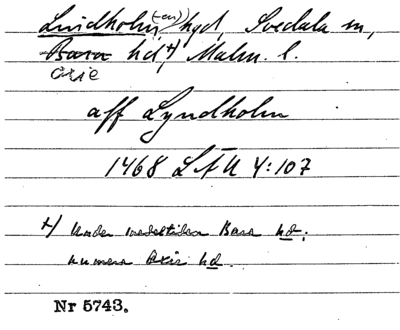 Lindholm (-en), hgd, Svedala sn,
Bara hd x) Malm. l.
Oxie
aff Lyndholm
1468 LÄU 4:107
x) Under medeltiden Bara hd;
numera Oxie hd.
Nr 5743.